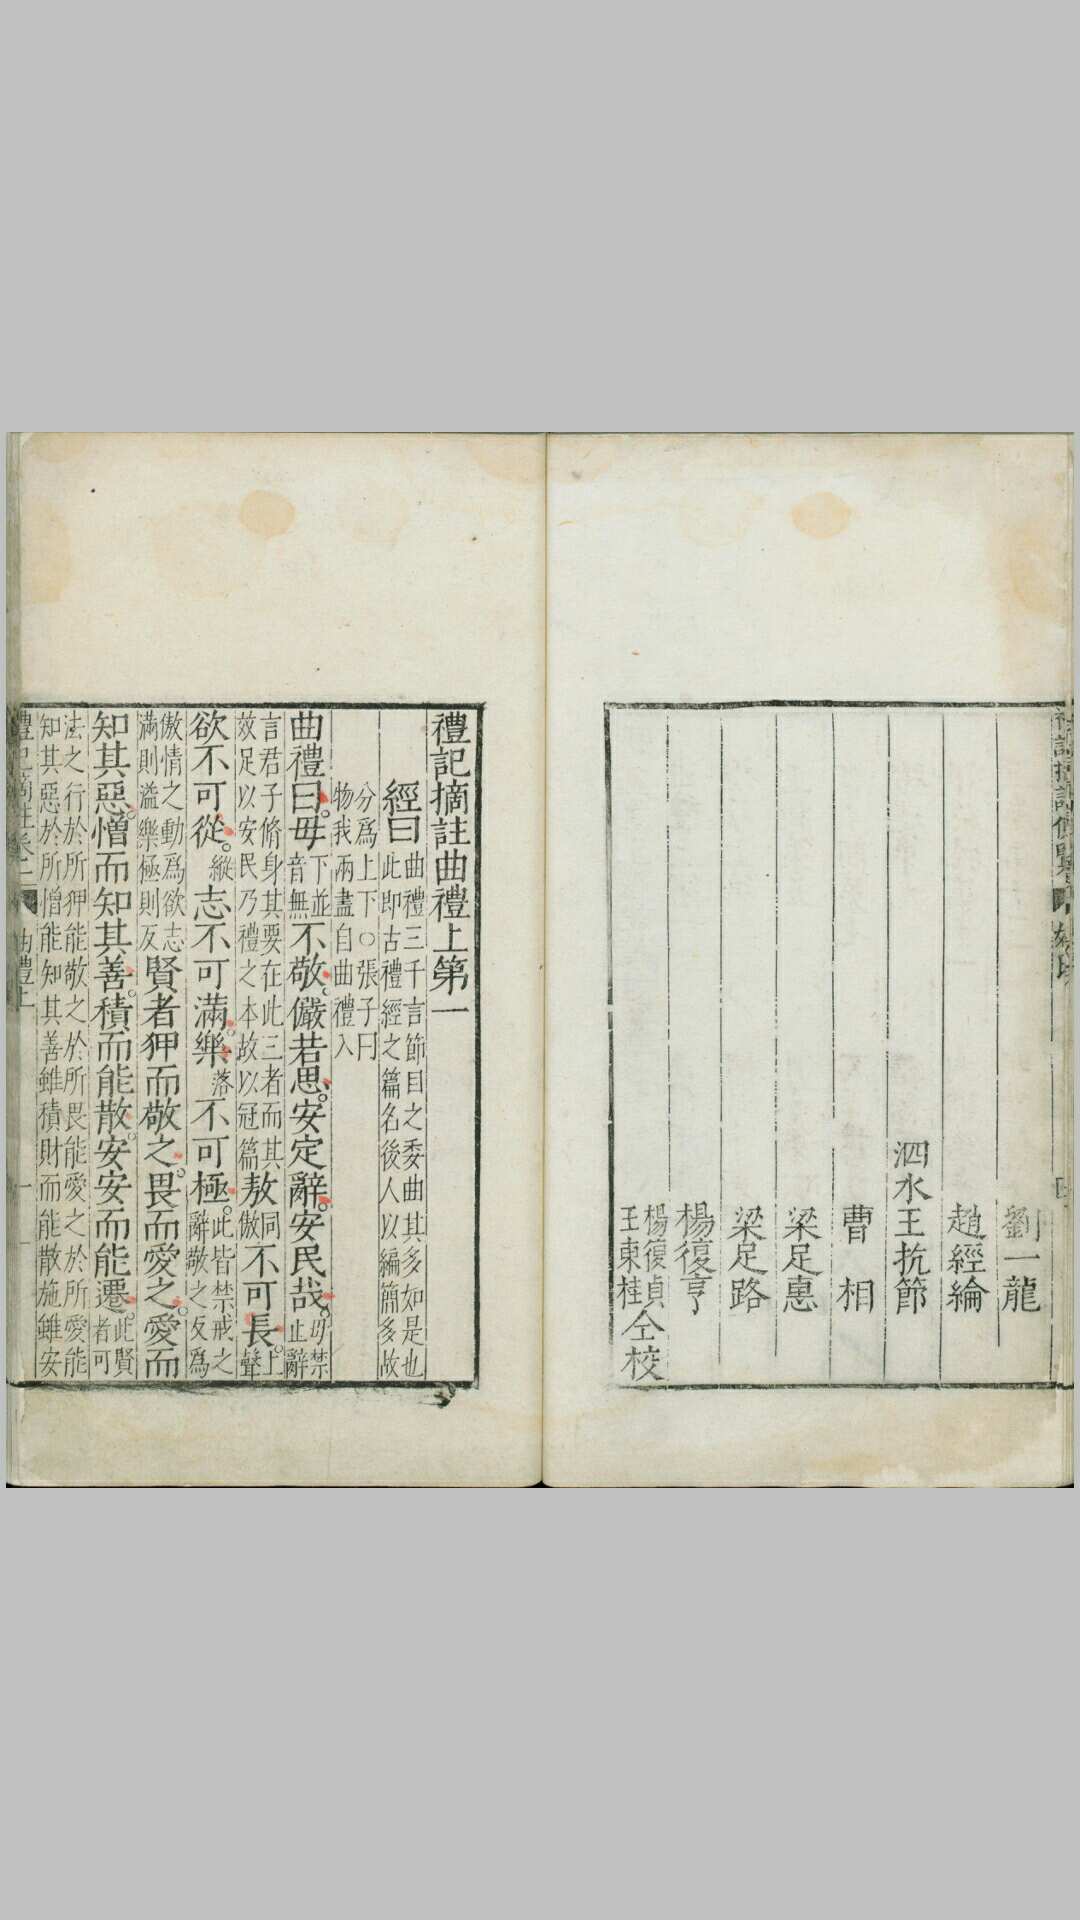 劉一龍
趙經綸
泗水王抗節
曹相
梁足惠
梁足路
楊復亨
楊復貞
王東桂
仝校
禮記摘註曲禮上第一
經曰
曲禮三千言節目之委曲其多如是也
此即古禮經之篇名後人以編簡多故
分爲上下○張子曰
物我兩盡自曲禮入
曲禮曰毋下並音無不敬儼若思安定辭安民哉毋禁止辭
言君子脩身其要在此三者而其
效足以安民乃禮之本故以冠篇敖同傲不可長上聲
欲不可從縱志不可滿樂落不可極此皆禁戒之辭敬之反爲
傲情之動爲欲志
滿則溢樂極則反賢者狎而敬之畏而愛之愛而
知其惡憎而知其善積而能散安安而能遷此賢者可
法之行於所狎能敬之於所畏能愛之於所愛能
知其惡於所憎能知其善雖積財而能散施雖安
曲禮上
一